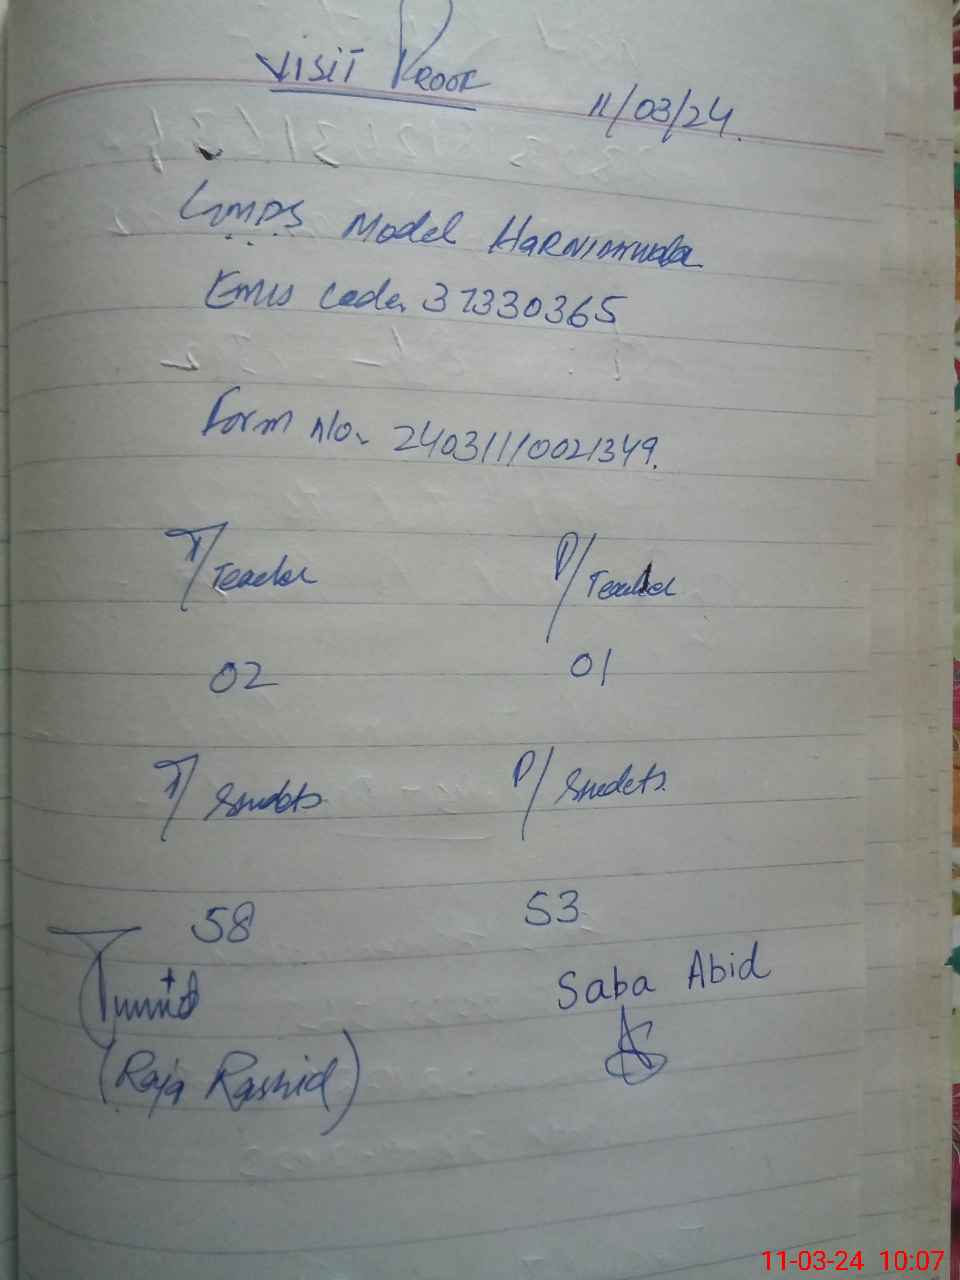 VISIT PROOF
11/03/24.
GMPS Model
Emis Code. 37330365
Form No. 24031110021349.
T/Teacher P/Teacher
02 01
T/Students P/Students.
58 53
Saba Abid
(Raja Rashid)
11-03-24 10:07